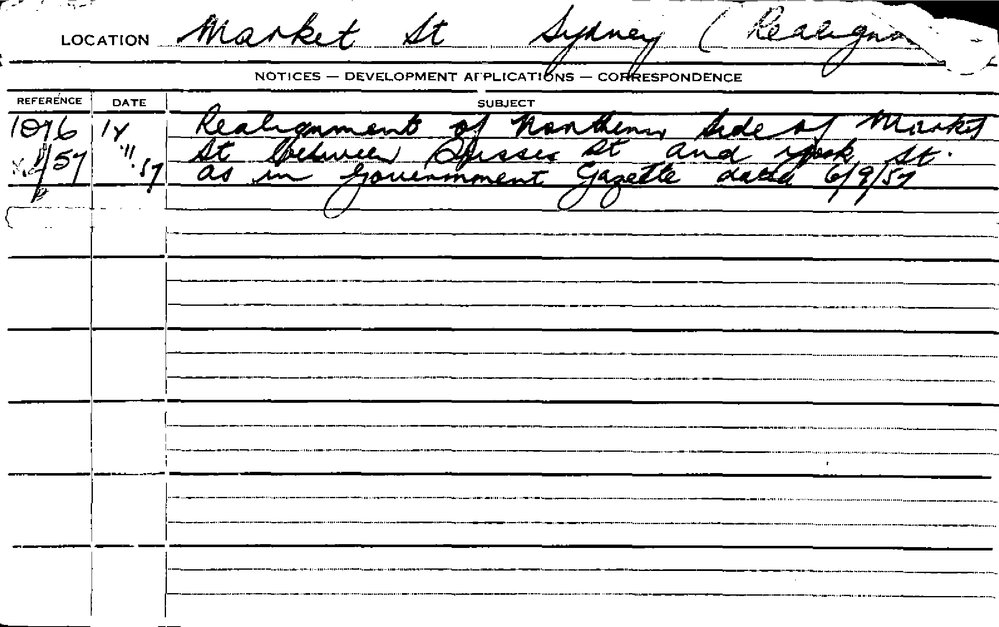 LOCATION Market St Sydney (Realignm
NOTICES — DEVELOPMENT APPLICATIONS — CORRESPONDENCE
REFERENCE DATE SUBJECT
1076 Realignment of Northern Side of Market
/57 11.57 St between Sussex St and York St.
as in Government Gazette dated 6/9/57